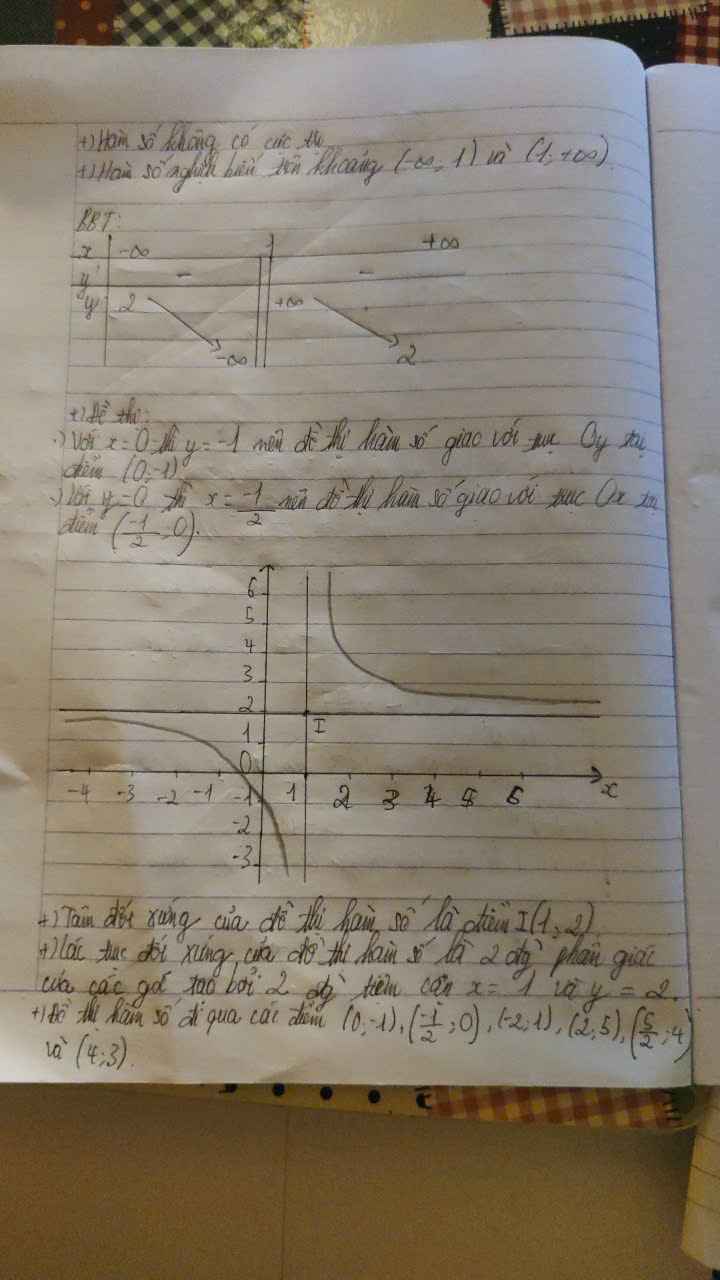 +) Hàm số không có cực trị
+) Hàm số nghịch biến trên khoảng (-∞; 1) và (1; +∞).
BBT:
x -∞ 1 +∞
y' - -
y 2 -∞ +∞ 2
+) Đồ thị:
.) Với x = 0 thì y = -1 nên đồ thị hàm số giao với trục Oy tại
điểm (0;-1)
.) Với y = 0 thì x = -1/2 nên đồ thị hàm số giao với trục Ox tại
điểm (-1/2; 0).
6
5
4
3
2
I
1
0
-4 -3 -2 -1 -1 1 2 3 4 5 6 x
-2
-3
+) Tâm đối xứng của đồ thị hàm số là điểm I(1; 2).
+) Các trục đối xứng của đồ thị hàm số là 2 đtg phân giác
của các góc tạo bởi 2 đtg tiệm cận x = 1 và y = 2.
+) Đồ thị hàm số đi qua các điểm (0;-1), (-1/2; 0), (-2; 1), (2; 5), (5/2; 4)
và (4; 3).